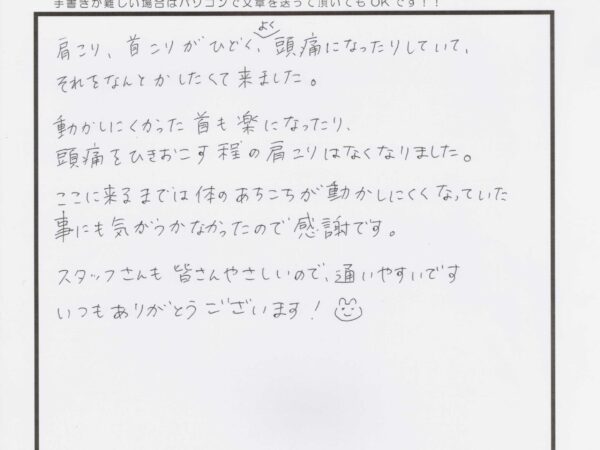 手書きが難しい場合はパソコンで文章を送って頂いてもOKです！！
肩こり、首こりがひどく、よく頭痛になったりしていて、
それをなんとかしたくて来ました。
動かしにくかった首も楽になったり、
頭痛をひきおこす程の肩こりはなくなりました。
ここに来るまでは体のあちこちが動かしにくくなっていた
事にも気がつかなかったので感謝です。
スタッフさんも皆さんやさしいので、通いやすいです
いつもありがとうございます！